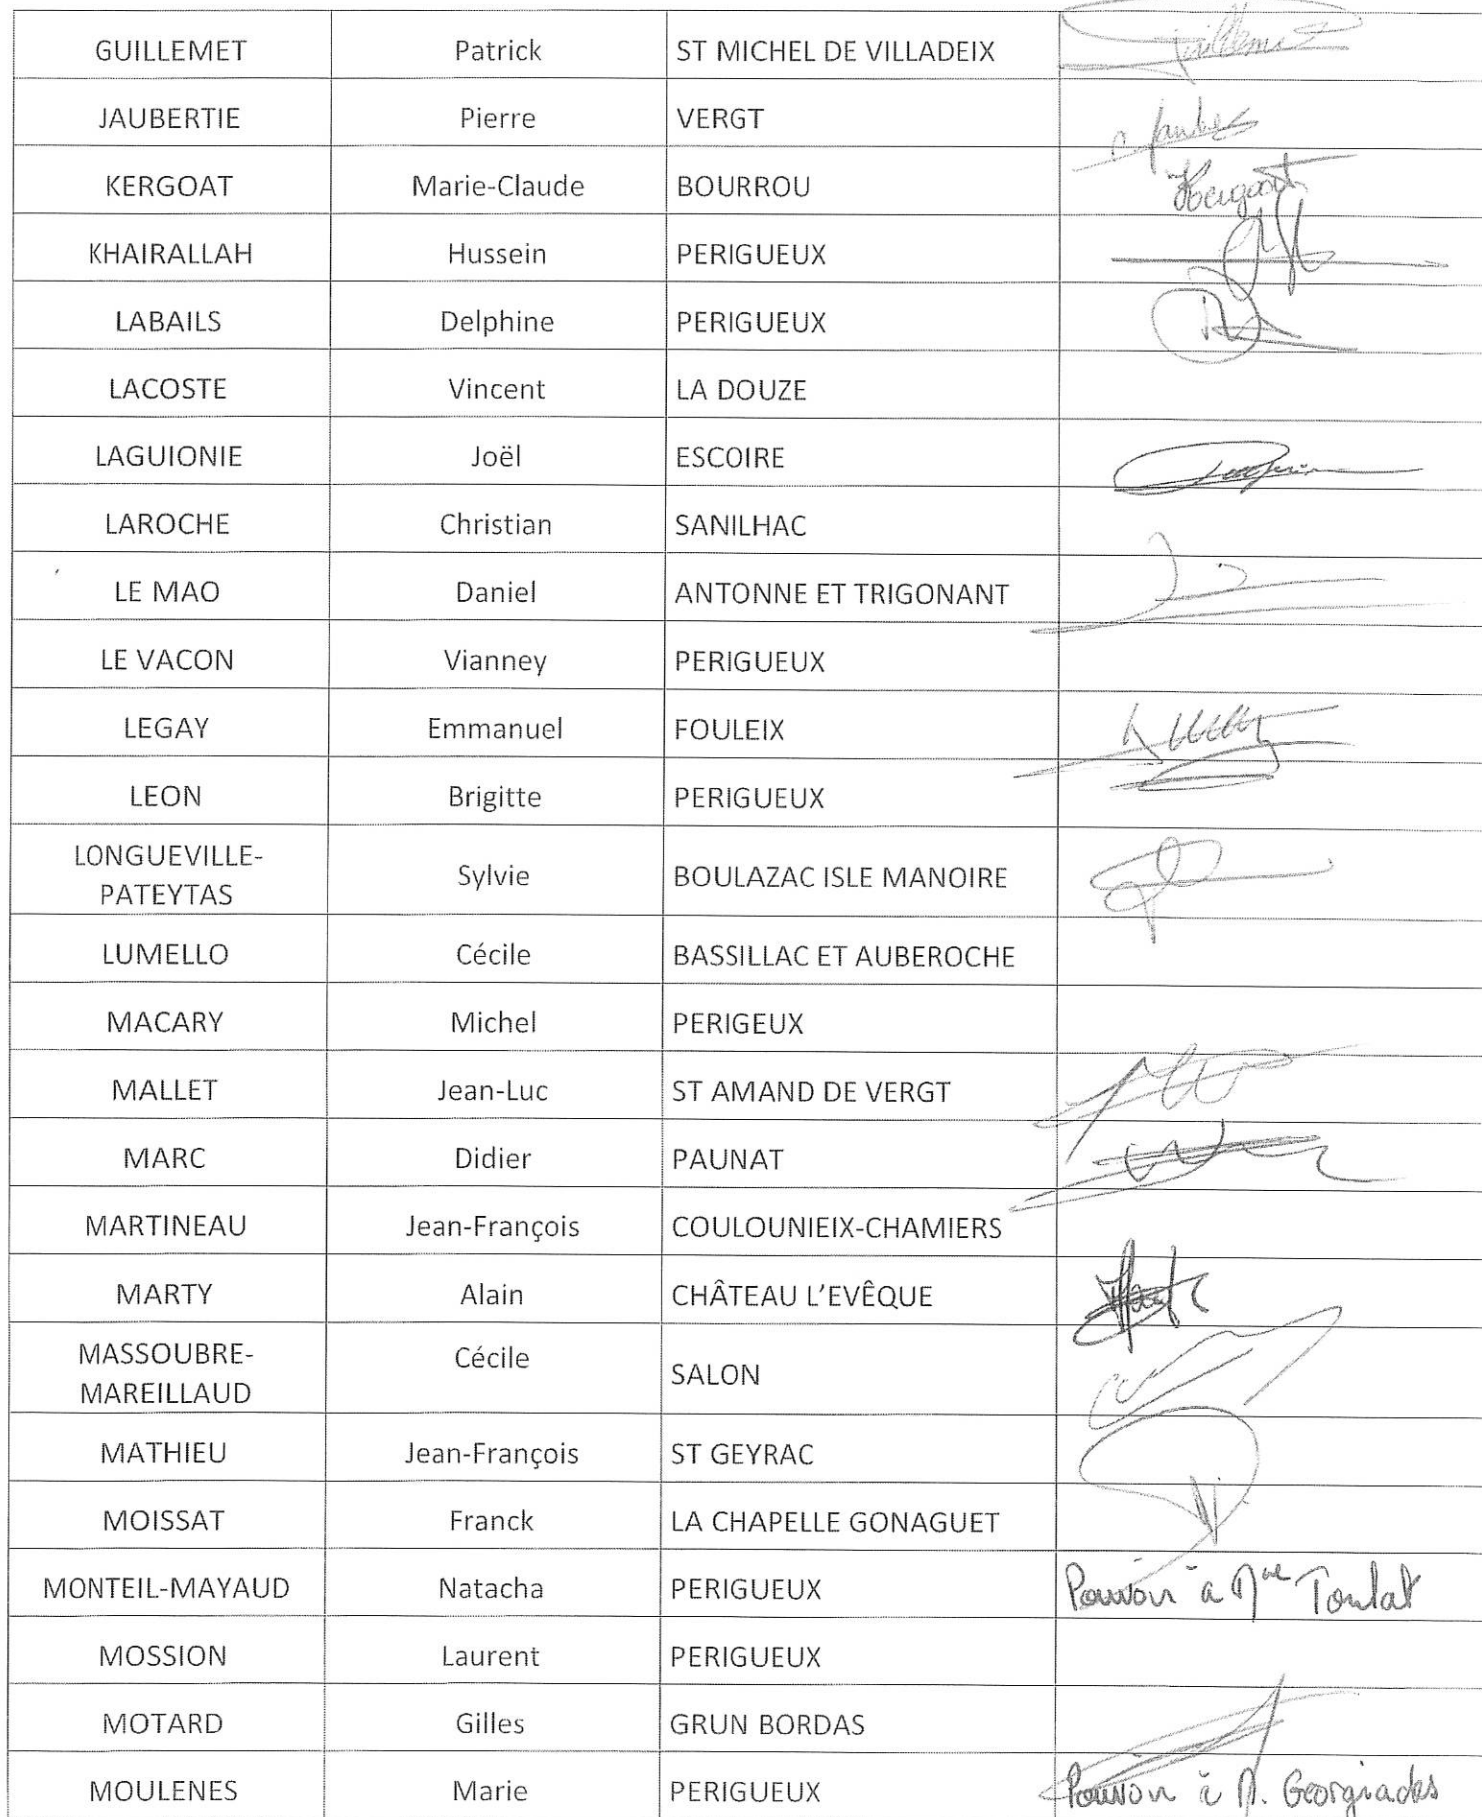 GUILLEMET Patrick ST MICHEL DE VILLADEIX
JAUBERTIE Pierre VERGT
KERGOAT Marie-Claude BOURROU Kergoat
KHAIRALLAH Hussein PERIGUEUX
LABAILS Delphine PERIGUEUX
LACOSTE Vincent LA DOUZE
LAGUIONIE Joël ESCOIRE
LAROCHE Christian SANILHAC
LE MAO Daniel ANTONNE ET TRIGONANT
LE VACON Vianney PERIGUEUX
LEGAY Emmanuel FOULEIX
LEON Brigitte PERIGUEUX
LONGUEVILLE-
PATEYTAS Sylvie BOULAZAC ISLE MANOIRE
LUMELLO Cécile BASSILLAC ET AUBEROCHE
MACARY Michel PERIGEUX
MALLET Jean-Luc ST AMAND DE VERGT
MARC Didier PAUNAT
MARTINEAU Jean-François COULOUNIEIX-CHAMIERS
MARTY Alain CHÂTEAU L'EVÊQUE
MASSOUBRE-
MAREILLAUD Cécile SALON
MATHIEU Jean-François ST GEYRAC
MOISSAT Franck LA CHAPELLE GONAGUET
MONTEIL-MAYAUD Natacha PERIGUEUX Pouvoir à Mme Toulat
MOSSION Laurent PERIGUEUX
MOTARD Gilles GRUN BORDAS
MOULENES Marie PERIGUEUX Pouvoir à M. Georgiades